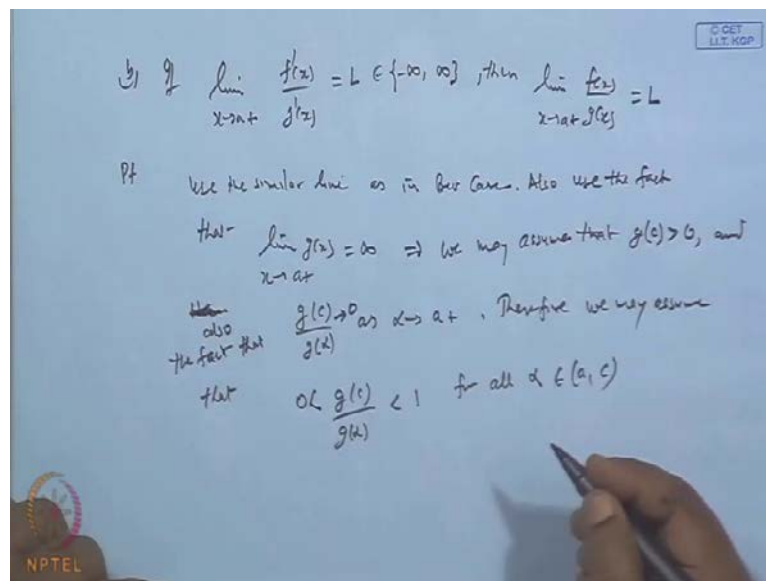 © CET
I.I.T. KGP
b) If lim x→a+ f'(x)/g'(x) = L ∈ {-∞, ∞}, then lim x→a+ f(x)/g(x) = L
Pf Use the similar line as in Case. Also use the fact
that lim x→a+ g(x) = ∞ ⇒ we may assume that g(c) > 0, and
also the fact that g(c)/g(α) → 0 as α→ a+. Therefore we may assume
that 0 < g(c)/g(α) < 1 for all α ∈ (a, c)
NPTEL